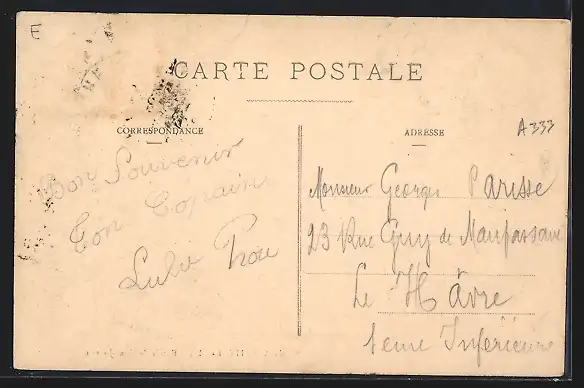 E
CARTE POSTALE
CORRESPONDANCE
ADRESSE
A333
Bon Souvenir
Ton Copain
Lulu
Monsieur Georges Parisse
23 Rue Guy de Maupassant
Le Hâvre
Seine Inférieure